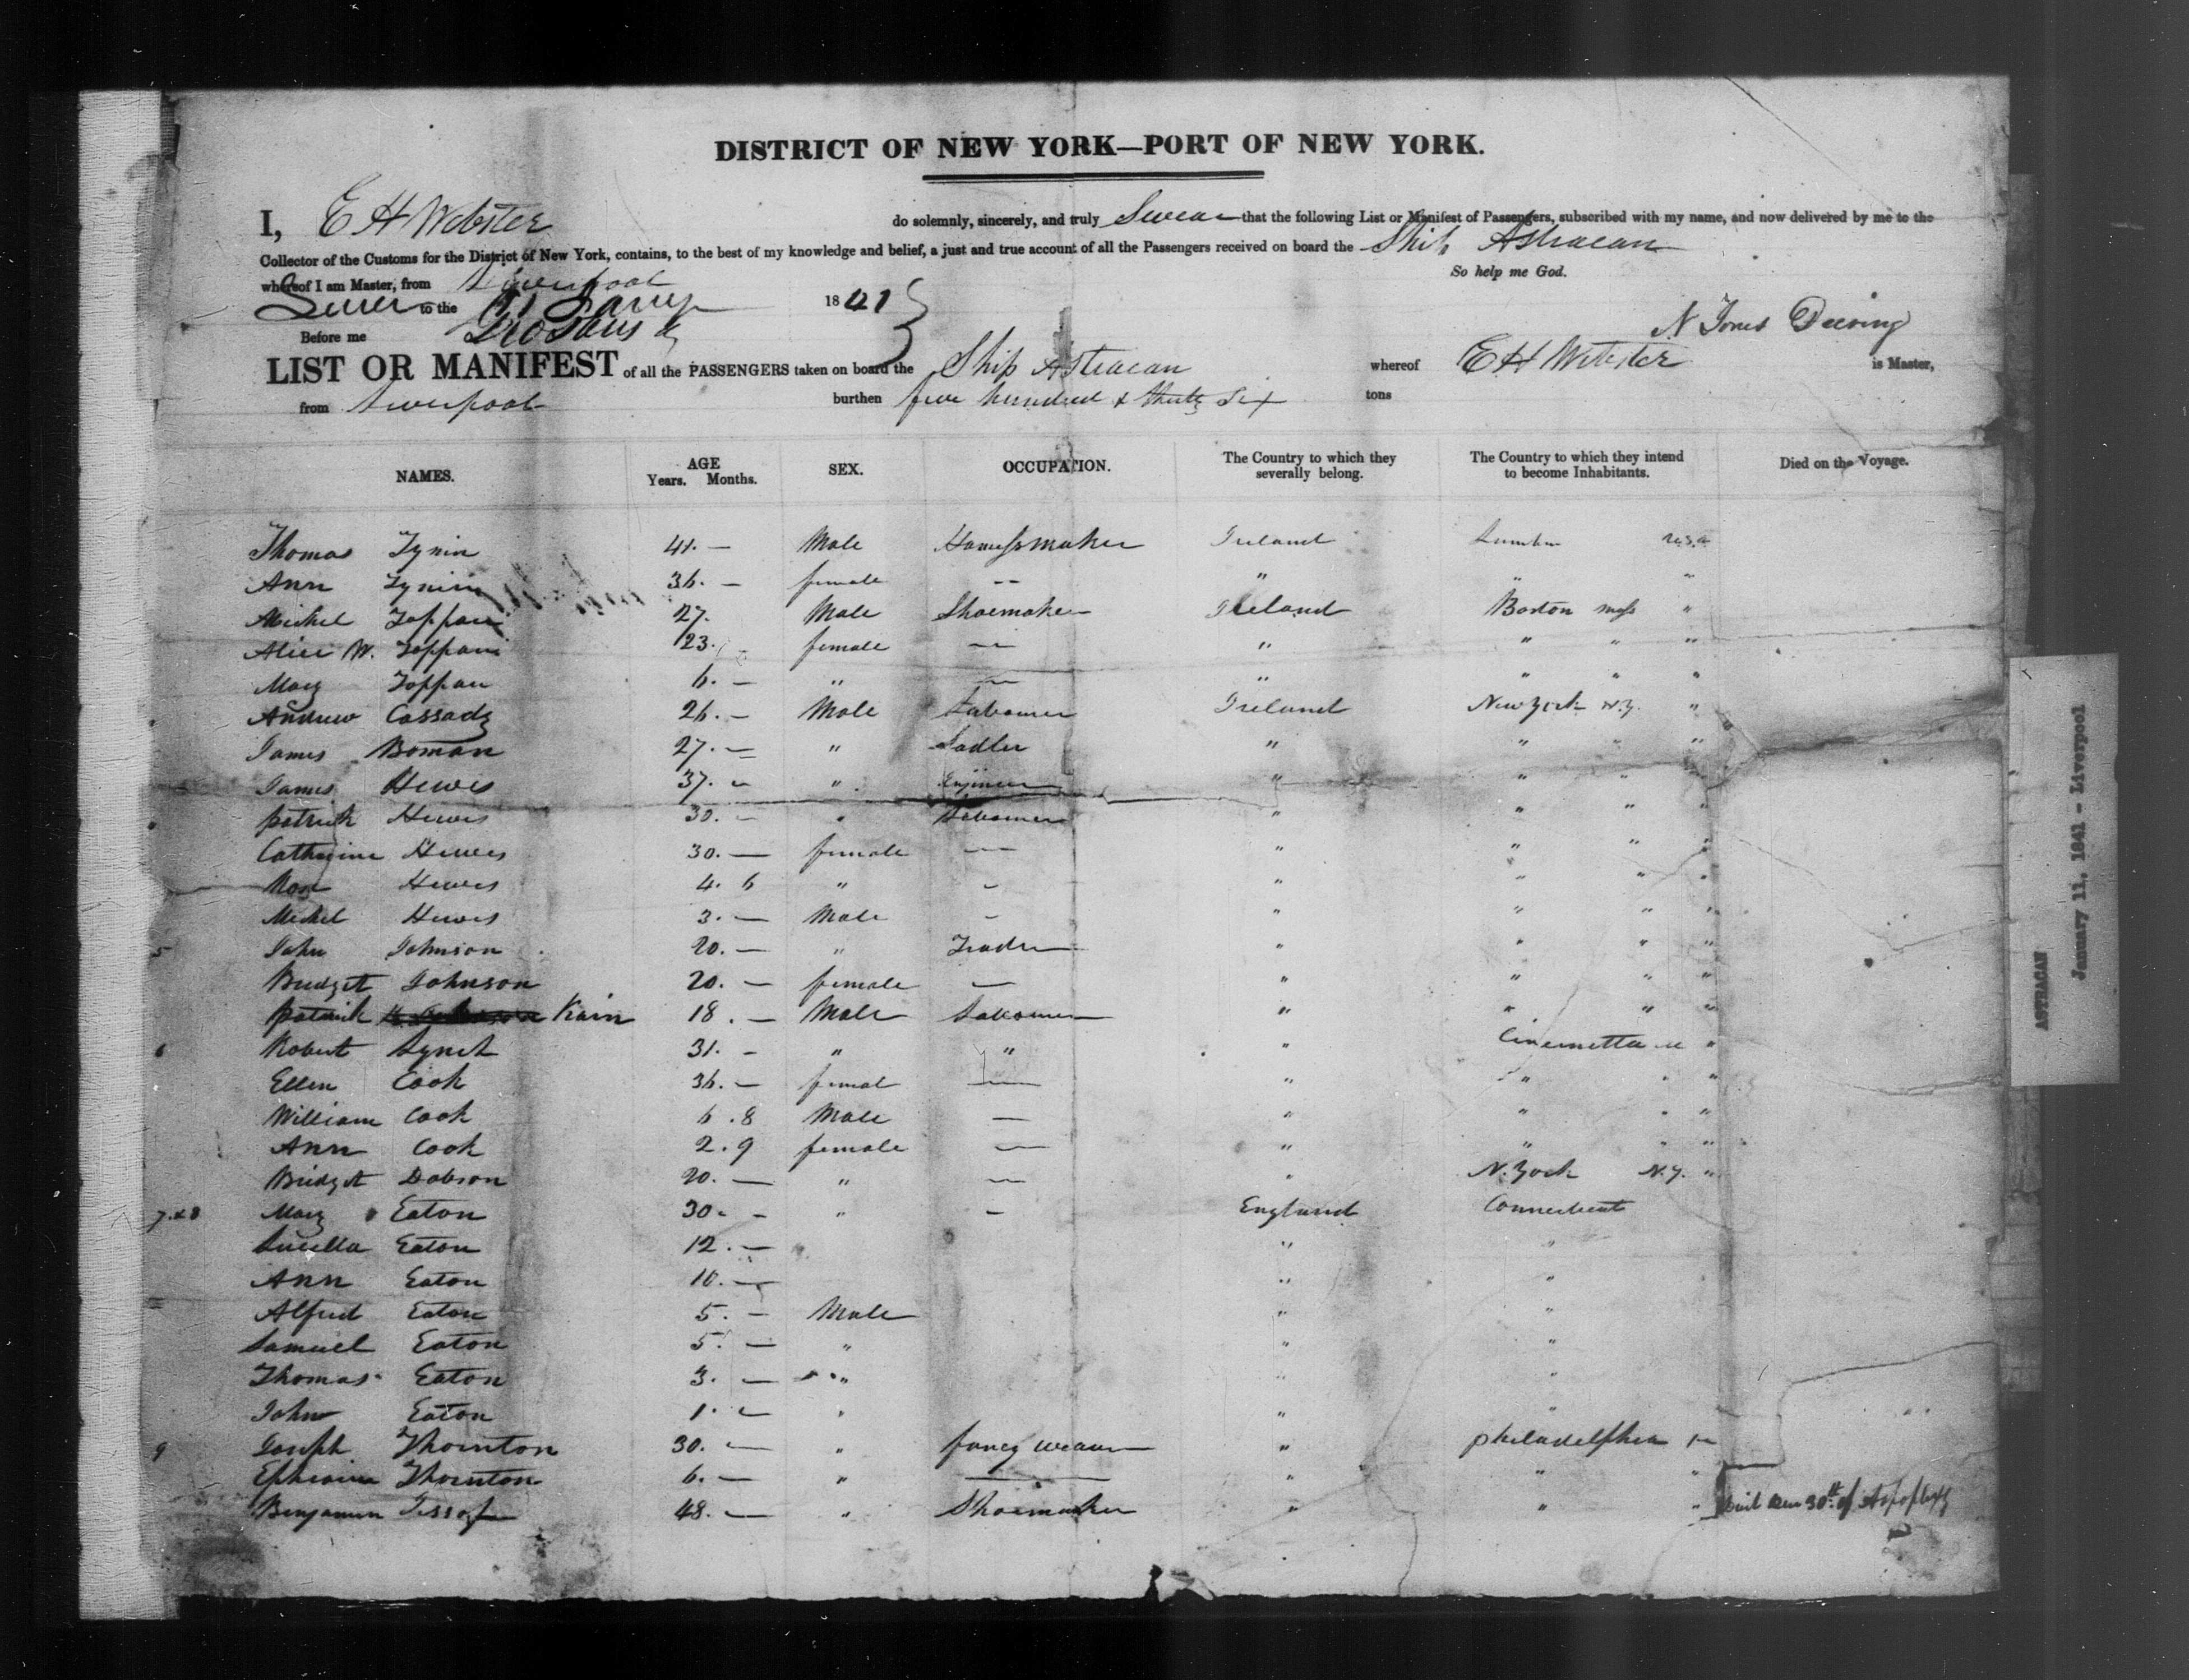 DISTRICT OF NEW YORK—PORT OF NEW YORK.
I, E H Webster do solemnly, sincerely, and truly Swear that the following List or Manifest of Passengers, subscribed with my name, and now delivered by me to the
Collector of the Customs for the District of New York, contains, to the best of my knowledge and belief, a just and true account of all the Passengers received on board the Ship Astracan
whereof I am Master, from Liverpool So help me God.
Sworn to the 11 Jany 1841
Before me
LIST OR MANIFEST of all the PASSENGERS taken on board the Ship Astracan whereof E H Webster is Master,
from Liverpool burthen five hundred & thirty Six tons
NAMES. AGE Years. Months. SEX. OCCUPATION. The Country to which they severally belong. The Country to which they intend to become Inhabitants. Died on the Voyage.
Thomas Tynin 41. — Male Harnessmaker Ireland
Ann Tynin 36. — female -- "
Michel Toppan 27. Male Shoemaker Ireland Boston mass "
Alice W. Toppan 23. female — " " " "
Mary Toppan 6. — " — " " " "
Andrew Cassady 26. — Male Labourer Ireland New York N.Y. "
James Boman 27. — " Sadler " " " "
James Hewes 37. — " Enjineer " " " "
patrick Hewes 30. — " Labourer " " " "
Catherine Hewes 30. — female — " " " "
Rose Hewes 4. 6 " – " " " "
Michel Hewes 3. — Male – " " " "
5 John Johnson 20. — " Trader " " " "
Bridget Johnson 20. — female — " " " "
patrick Kain 18. — Male Labourer " " " "
6 Robert Lynch 31. – " " " Cincinnetta "
Ellen Cook 36. — femal — " " " "
William Cook 6. 8 Male — " " " "
Ann Cook 2. 9 female — " " " "
Bridget Dobson 20. — " — " N. York N.Y. "
7 & 8 Mary Eaton 30. – " – England Connecticut
Luculla Eaton 12. — " "
Ann Eaton 10. — " "
Alfred Eaton 5. – Male " "
Samuel Eaton 5. — " " "
Thomas Eaton 3. — " " "
John Eaton 1. – " " "
9 Joseph Thornton 30. — " fancy weaver " philadelphia
Ephraim Thornton 6. — " — " " "
Benjamin 48. — " Shoemaker " " " Died Dec 30th of Apoplexy
ASTRACAN
January 11, 1841 - Liverpool